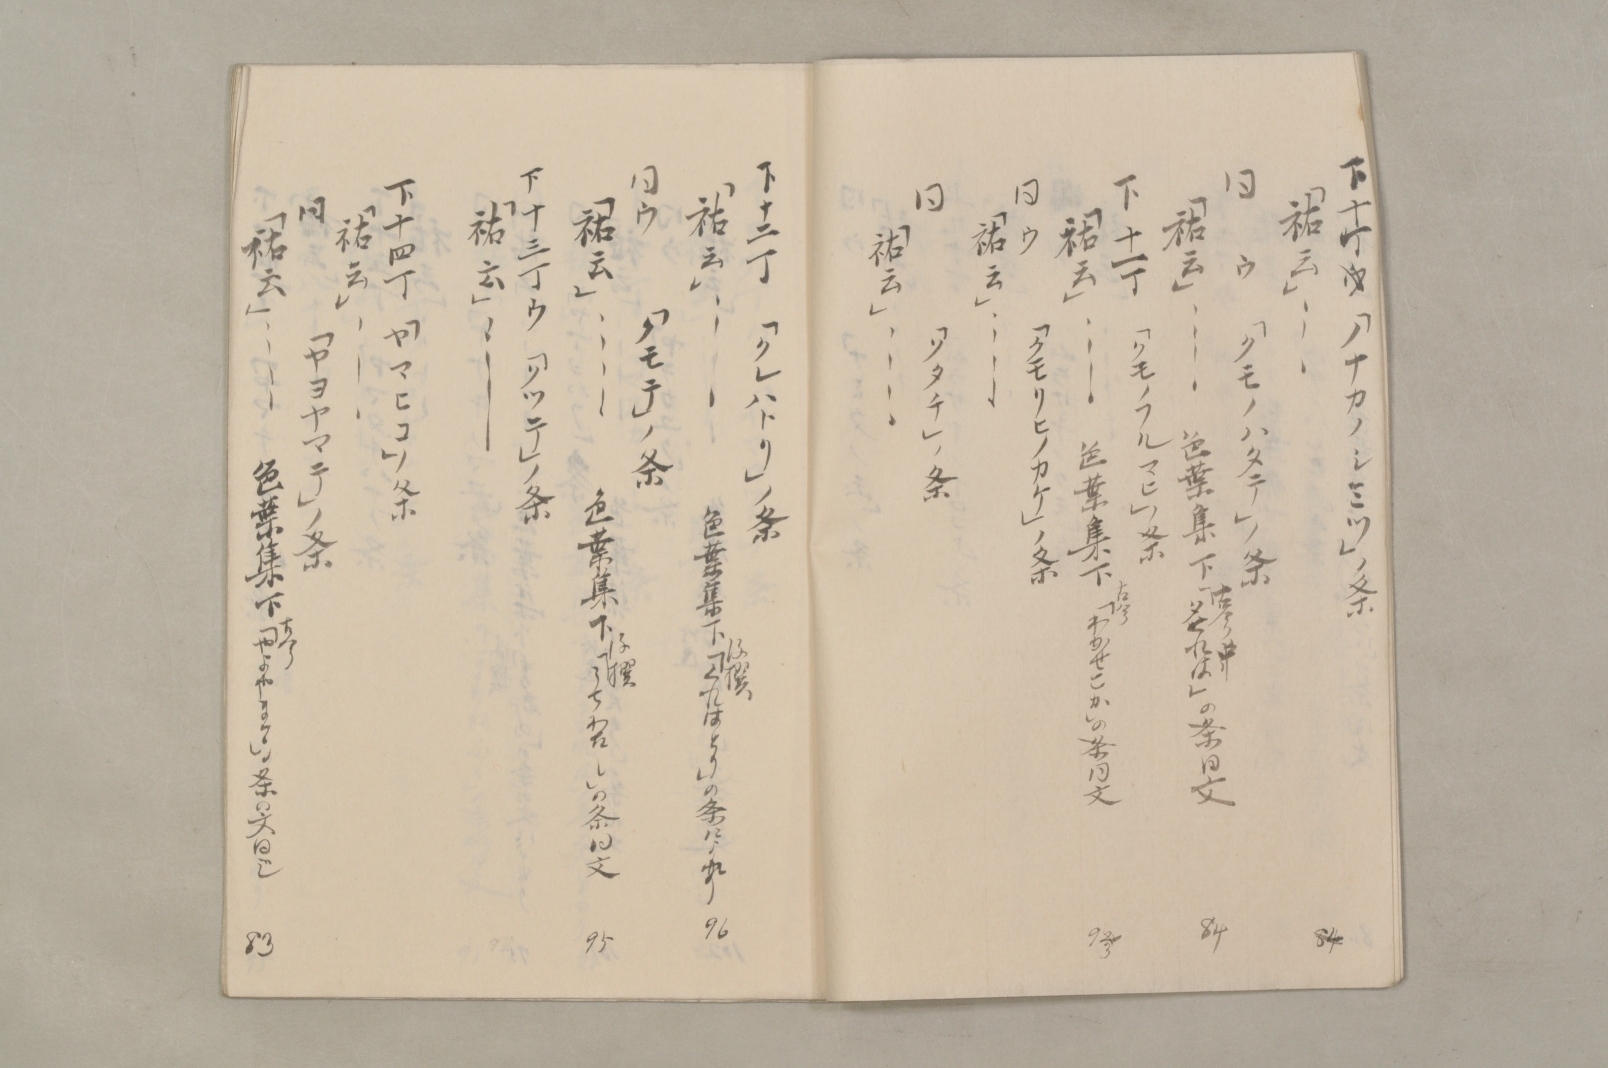 下十丁ウ 「ノナカノシミツ」ノ条
「祐云」
84
同ウ 「クモノハタテ」ノ条
「祐云」 色葉集下 古今「夕されは」の条同文
84
下十一丁 「クモノフルマヒ」ノ条
「祐云」 色葉集下 古今「わかせこか」の条同文
93
同ウ 「クモリヒノカケ」ノ条
「祐云」
同 「クタチ」ノ条
「祐云」
下十二丁 「クレハトリ」ノ条
「祐云」 色葉集下 後撰「くれはとり」の条
96
同ウ 「クモテ」ノ条
「祐云」 色葉集下 後撰「うちわたし」の条同文
95
下十三丁ウ 「クツテ」ノ条
「祐云」
下十四丁 「ヤマヒコ」ノ条
「祐云」
同 「ヤヨヤマテ」ノ条
「祐云」 色葉集下 古今「やよやまて」の条の文同じ
83